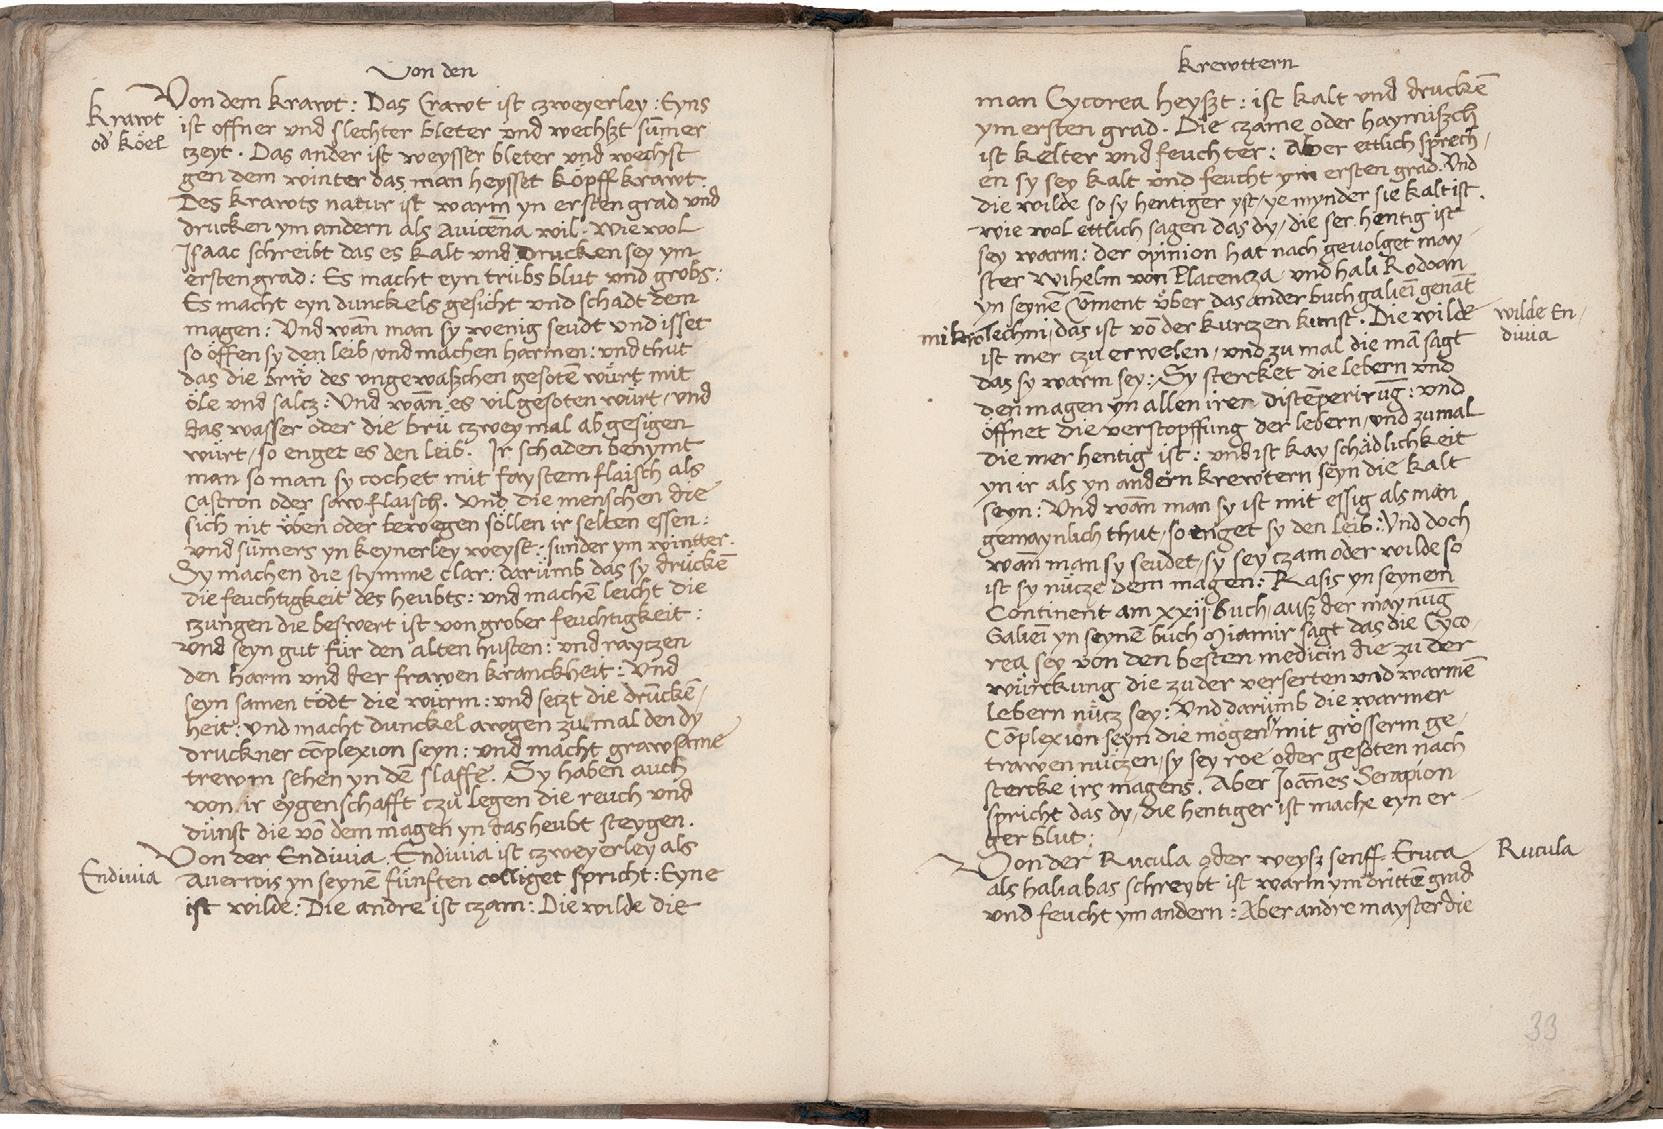 Von den
Krawt
od' Köel
Von dem Krawt: Das Crawt ist czweyerley: Eyns
ist offner und slechter bleter und wechszt sum̄er
czeyt. Das ander ist weysser bleter und wechst
gen dem winter das man heysset Köpff krawt.
Des krawts natur ist warm yn ersten grad und
drucken ym andern als Avicēna wil. Wie wol
Isaac schreibt das es kalt und Drucken sey ym
ersten grad: Es macht eyn trübs blut und grobs:
Es macht eyn dunckels gesicht und schadt dem
magen: Und wān man sy wenig seudt und isset
so öffen sy den leib, und machen harmen: und thut
das die brw̋ des ungewaszchen gesotē würt mit
öle und salcz: Und wān es vil gesoten würt, und
das wasser oder die brü czwey mal abgesigen
würt, so enget es den leib. Ir schaden benymt
man so man sy cochet mit faystem flaisch als
Castron oder saw flaisch. Und die menschen die
sich nit üben oder bewegen söllen ir selten essen:
und sum̄ers yn keynerley weyse: sunder ym wintter.
Sy machen die stymme clar: darumb das sy drückē
die feuchtigkeit des heubts: und machē leicht die
czungen die beswert ist von grober feuchtigkeit:
und seyn gut für den alten husten: und rayczen
den harm und der frawen kranckheit: Und
seyn samen tödt die würm: und seczt die druckē-
heit: und macht dunckel awgen zu mal den dy
druckner cōplexion seyn: und macht grawsame
trewm sehen yn dē slaffe. Sy haben auch
von ir eygenschafft czu legen die reuch und
dünst die vō dem magen yn das heubt steygen.
Von der Endivia. Endivia ist czweyerley als
Endivia
Averrois yn seynē fünften colliget spricht: Eyne
ist wilde: Die andre ist czam: Die wilde die
Krewttern
man Cycorea heyszt: ist kalt und druckē
ym ersten grad. Die czame oder haymiszch
ist kelter und feuchter: Aber ettlich sprech-
en sy sey kalt und feucht ym ersten grad. Und
die wilde so sy hentiger yst, ye mynder sie kalt ist.
wie wol ettlich sagen das dy, die ser hentig ist
sey warm: der opinion hat nach gevolget may-
ster Wihelm von Placencza und hali Rodoan
yn seynē Cōment über das ander buch galieī genāt
mikrotechni, das ist vō der kurczen kunst. Die wilde
wilde En-
divia
ist mer czu erwelen, und zu mal die mā sagt
das sy warm sey: Sy stercket die lebern und
den magen yn allen iren distēperirūg: und
öffnet die verstopffung der lebern, und zumal
die mer hentig ist: und ist kay schädlichkeit
yn ir als yn andern krewtern seyn die kalt
seyn: Und wān man sy ist mit essig als man
gemaynlich thut, so enget sy den leib: Und doch
wān man sy seudet, sy sey czam oder wilde so
ist sy nücze dem magen: Rasis yn seynem
Continent am xxij buch, ausz der maynūg
Galieī yn seynē buch Miamir sagt das die Cyco-
rea sey von den besten medicin die zu der
würckung die zu der verserten und warmē
lebern nücz sey: Und darumb die warmer
Cōplexion seyn die mögen sy mit grösserm ge-
trawen nüczen, sy sey roe oder gesoten nach
stercke irs magens. Aber Joānes Serapion
spricht das dy, die hentiger ist mache eyn er-
ger blut:
Von der Rucula oder weysz senff. Eruca
Rucula
als haliabas schreybt ist warm ym drittē grad
und feucht ym andern: Aber andre mayster die
33